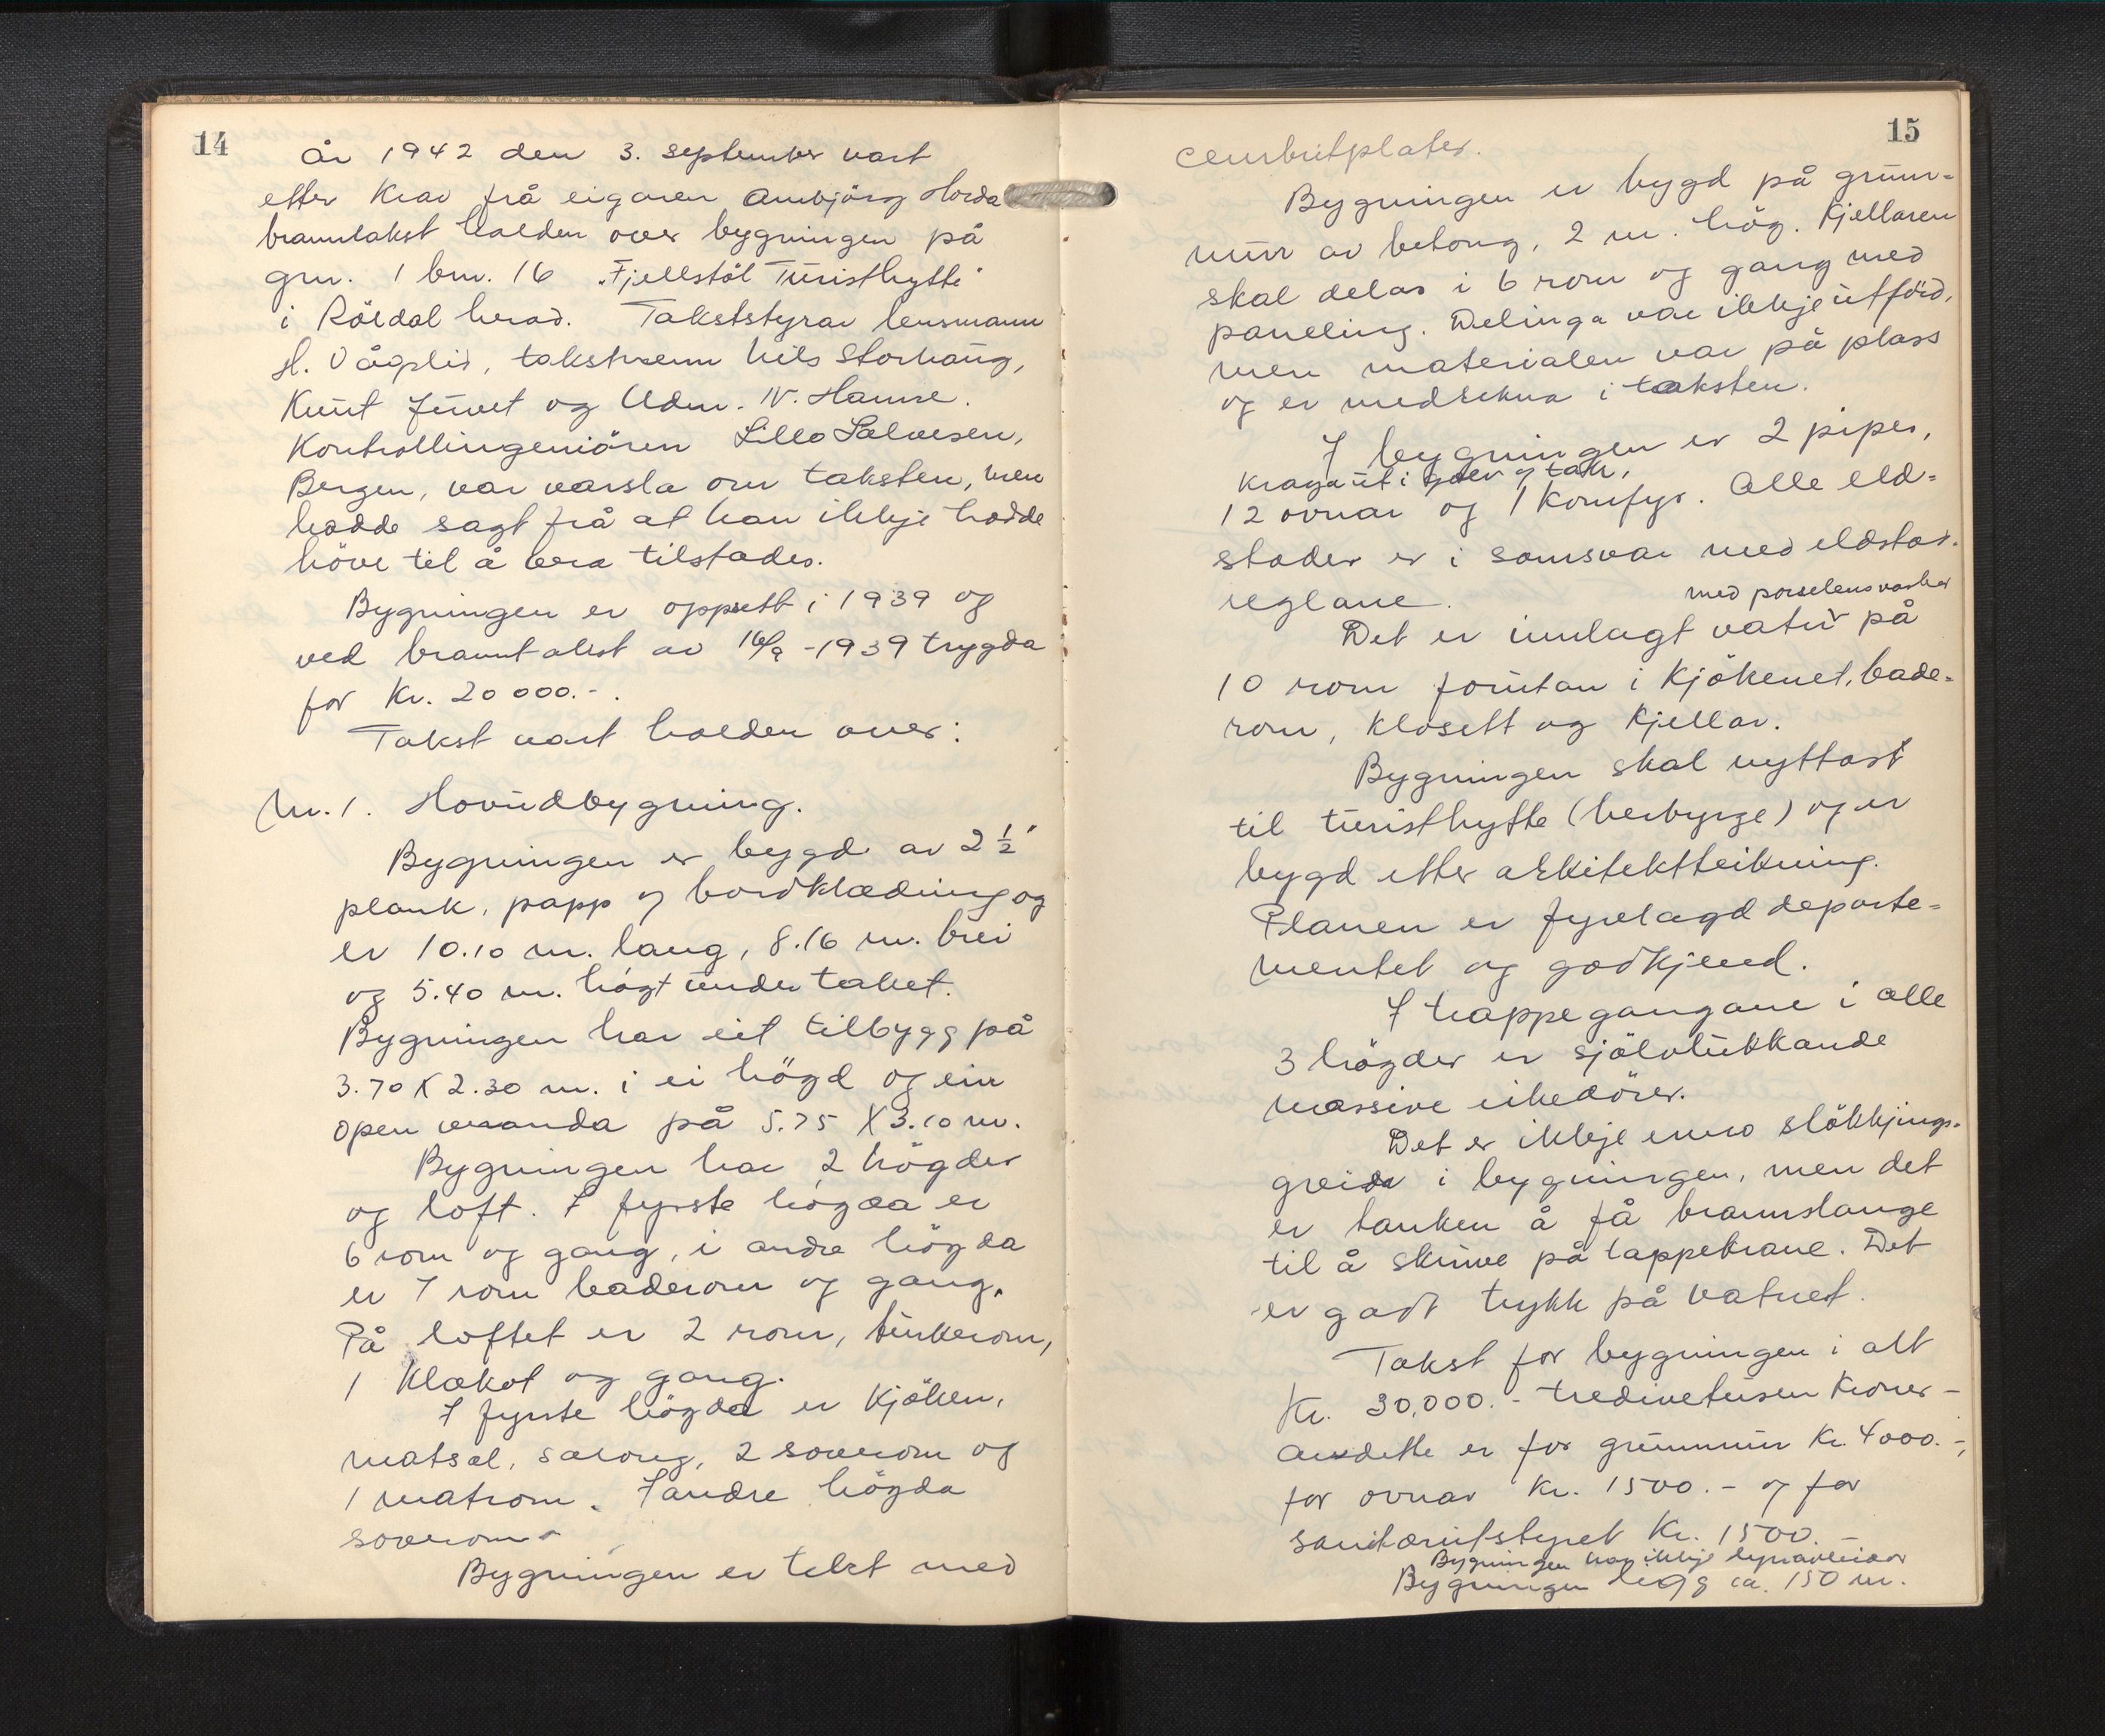 14
År 1942 den 3. september vart
etter krav frå eigaren Ambjörg Horda
branntakst halden over bygningen på
gnr. 1 bnr. 16 „Fjellstöl Turisthytte"
i Röldal herad. Takststyrar lensmann
H. Vågslid, takstmenn Nils Storhaug,
Knut Juvet og Adm. N. Hamre.
Kontrollingeniören Lillo Salvesen,
Bergen, var varsla om taksten, men
hadde sagt frå at han ikkje hadde
höve til å vera tilstades.
Bygningen er oppsett i 1939 og
ved branntakst av 16/9 - 1939 trygda
for Kr. 20 000.-.
Takst vart halden over:
Nr. 1. Hovudbygning.
Bygningen er bygd av 2 ½"
plank, papp og bordklædning og
er 10.10 m. lang, 8.16 m. brei
og 5.40 m. högt under taket.
Bygningen har eit tilbygg på
3.70 X 2.30 m. i ei högd og ein
open veranda på 5.75 X 3.10 m.
Bygningen har 2 högder
og loft. I fyrste högda er
6 rom og gang, i andre högda
er 7 rom baderom og gang.
På loftet er 2 rom, türkerom,
1 klækot og gang.
I fyrste högda er kjöken,
matsal, salong, 2 soverom og
1 matrom. I andre högda
soverom
Bygningen er tekt med
15
cembritplater.
Bygningen er bygd på grunn-
mur av betong, 2 m. hög. Kjellaren
skal delas i 6 rom og gang med
paneling. Delinga var ikkje utförd,
men materialen var på plass
og er medrekna i taksten.
I bygningen er 2 piper,
kraga ut i golv og tak,
12 ovnar og 1 komfyr. Alle eld-
stader er i samsvar med eldstad-
reglane.
med porselensvasker
Det er innlagt vatn på
10 rom forutan i kjökenet, bade-
rom, klosett og kjellar.
Bygningen skal nyttast
til turisthytte (herbyrge) og er
bygd etter arkitektteikning.
Planen er fyrelagd departe-
mentet og godkjend.
I trappegangane i alle
3 högder er sjölvlukkande
massive eikedörer.
Det er ikkje enno slökkjings-
greida i bygningen, men det
er tanken å få brannslange
til å skruve på tappekrane. Det
er godt trykk på vatnet.
Takst for bygningen i alt
Kr. 30,000.- tredivetusen kroner -
Av dette er for grunnmur Kr. 4000.-,
for ovnar Kr. 1500.- og for
sanitærutstyret Kr. 1500.-
Bygningen har ikkje lynavleidar
Bygningen ligg ca. 150 m.